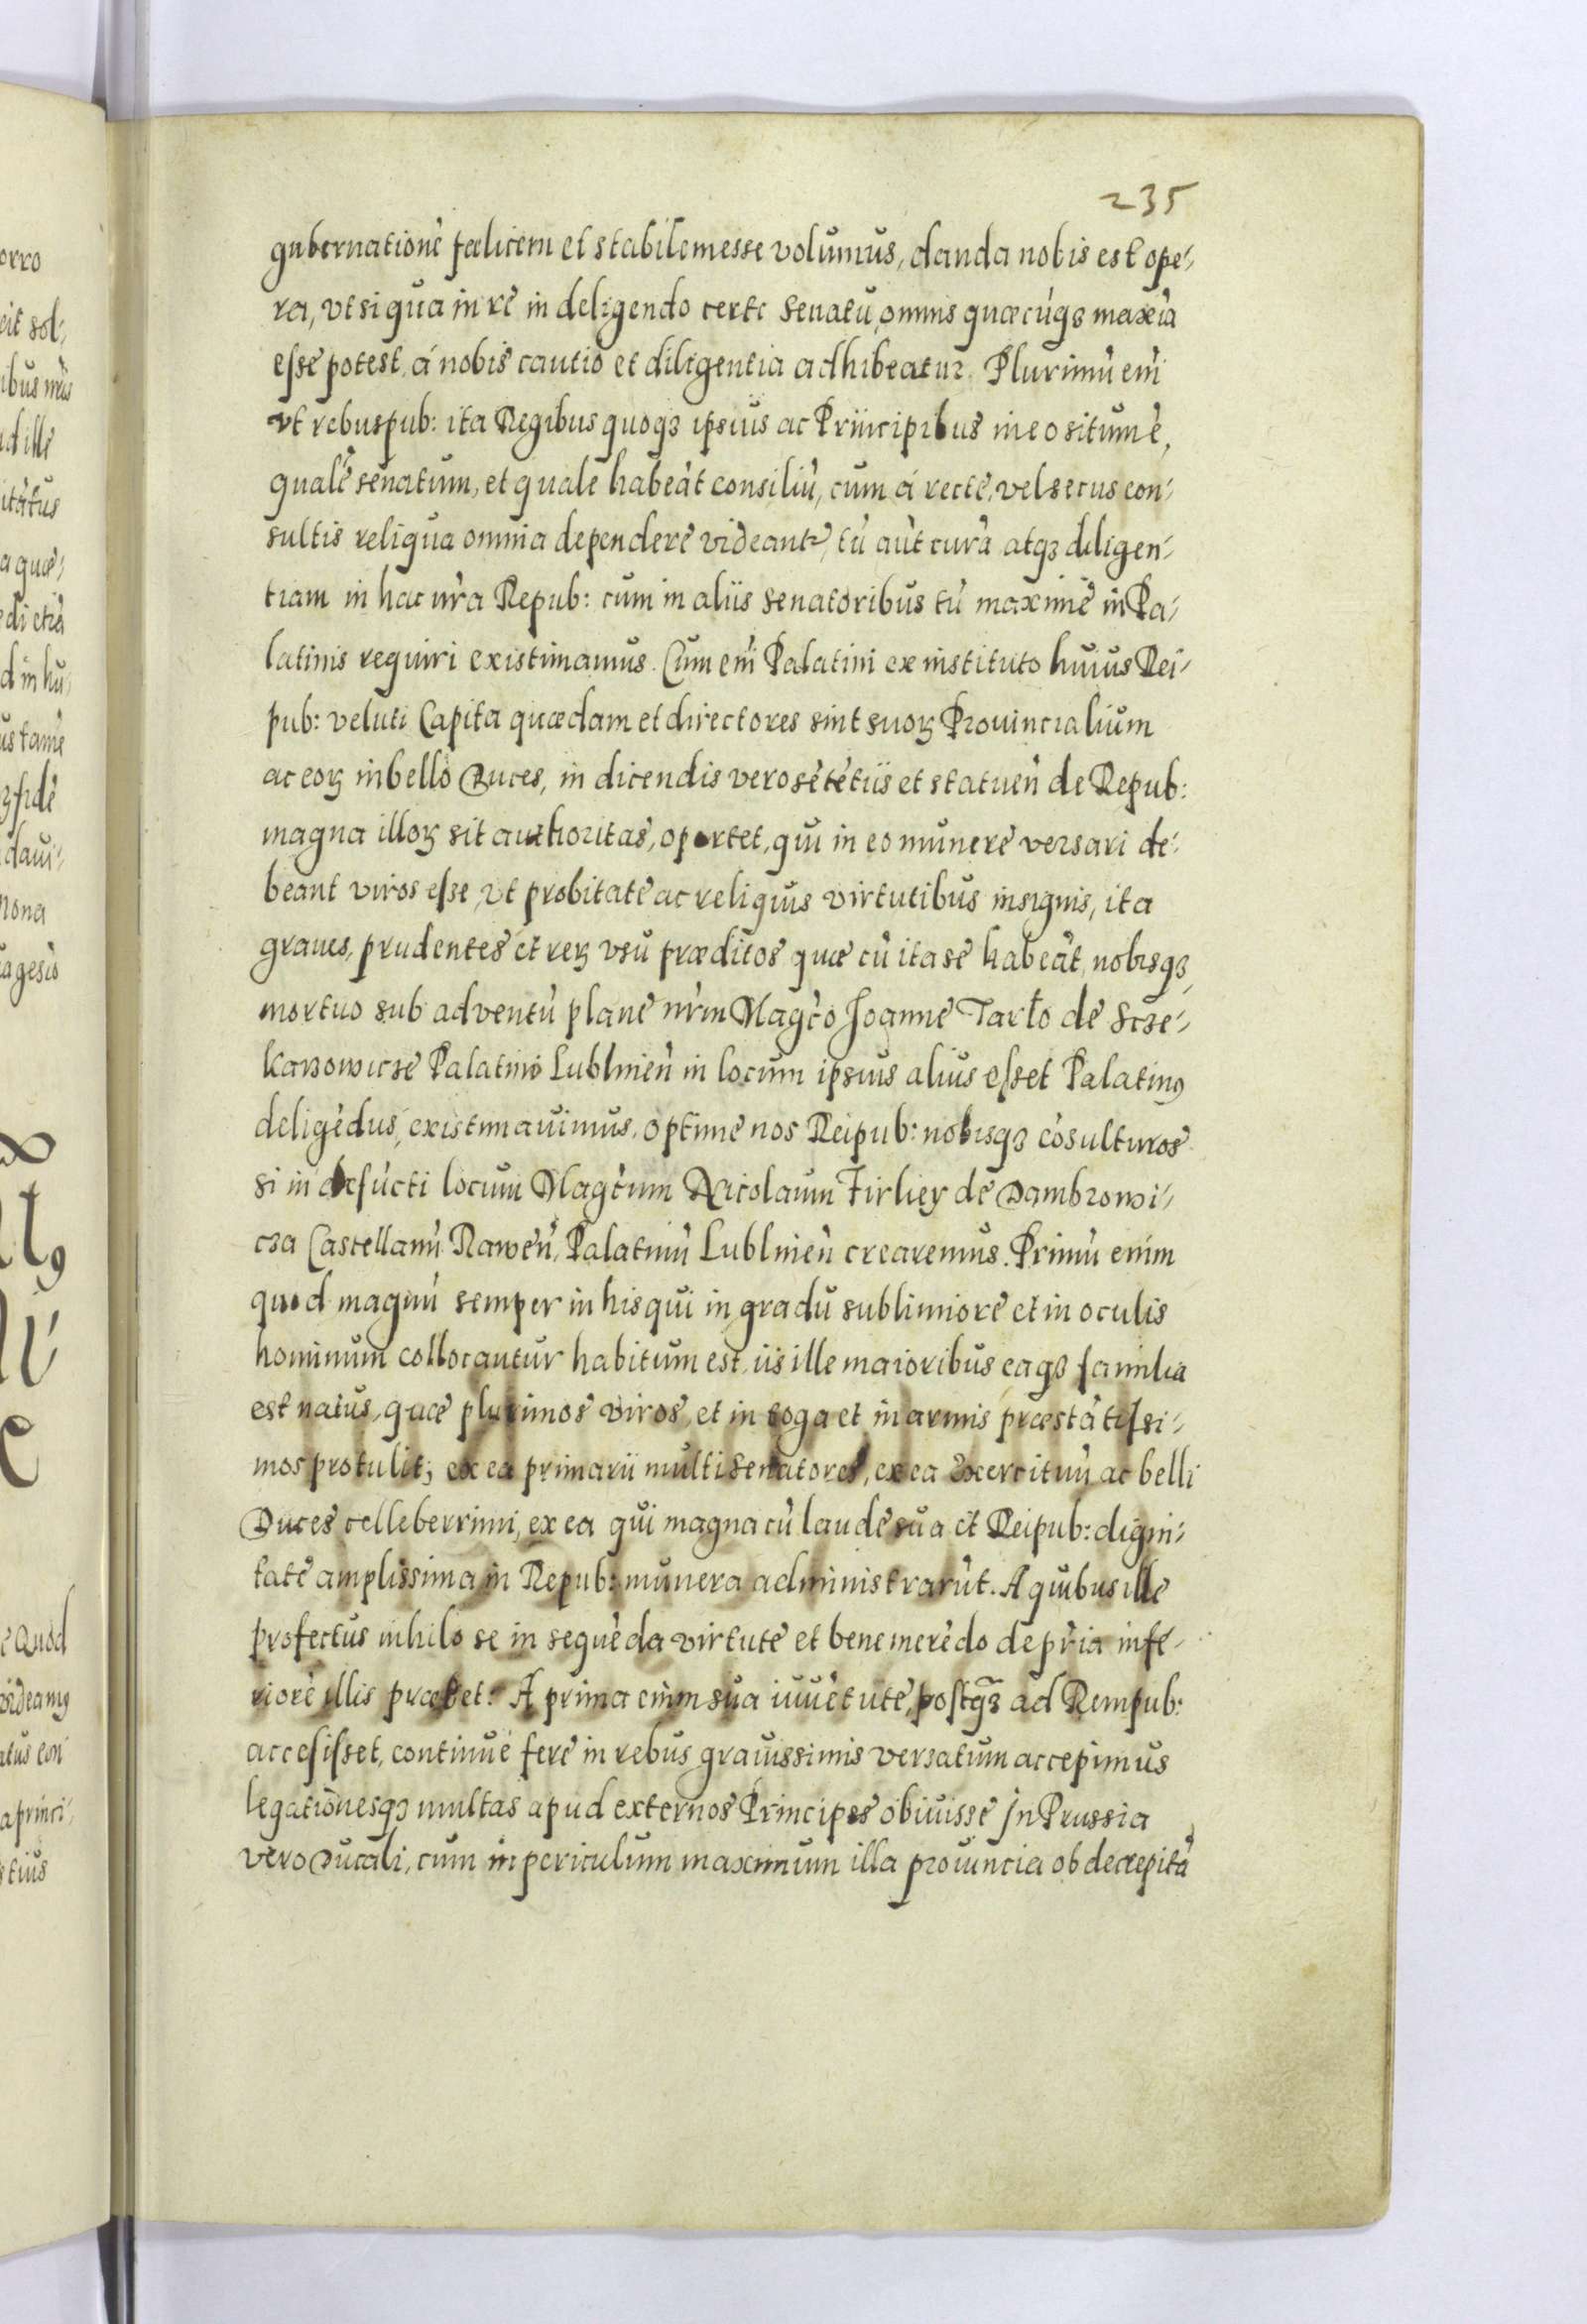 235
gubernationē fœlicem et stabilem esse volumus, danda nobis est ope-
ra, vt si qua in re in deligendo certe Senatu, omnis quæcūq3 maxīa
esse potest, á nobis cautio et diligentia adhibeatur. Plurimū eni
vt rebuspub: ita Regibus quoq3 ipsius ac Principibus in eo situm ē,
qualē senatum, et quale habeāt consiliū, cum á recte, vel secus con-
sultis reliqua omnia dependere videantr, tū aūt curā atq3 diligen-
tiam in hac nr̄a Repub: cum in aliis Senatoribus tū maxime in Pa-
latinis requiri existimamus. Cum eni Palatini ex instituto huius Rei-
pub: veluti Capita quædam et directores sint suoꝝ Prouincialium
ac eoꝝ in bello Duces, in dicendis vero sētētiis et statuen̄ de Repub:
magna illoꝝ sit authoritas, oportet, qui in eo munere versari de-
beant viros esse, vt probitate ac reliquis virtutibus insignis, ita
graues, prudentes et reꝝ vsu præditos quæ cū ita se habeāt, nobisq3
mortuo sub adventū plane nr̄m Magc̄o Joanne Tarło de Scze-
karzowicze Palatino Lublinen̄ in locum ipsius alius esset Palatinꝰ
deligēdus, existimauimus, optime nos Reipub: nobisq3 cōsulturos
si in defūcti locum Magc̄um Nicolaum Firliey de Dambrowi-
cza Castellanū Rawen̄, Palatinū Lublinen̄ crearemus. Primū enim
quod magnū semper in his qui in gradu sublimiore et in oculis
hominum collocantur habitum est, iis ille maioribus eaq3 familia
est natus, quæ plurimos viros, et in toga et in armis præstātissi-
mos protulit; ex ea primarii multi Senatores, ex ea Exercituū ac belli
Duces celleberrimi, ex ea qui magna cū laude sua et Reipub: digni-
tate amplissima in Repub: munera administrarūt. A quibus ille
profectus nihilo se in sequēda virtute et bene merēdo de pr̄ia infe-
riorē illis præbet. A prima enim sua iuuētute, postq̄3 ad Rempub:
accesisset, continue fere in rebus grauissimis versatum accepimus
legationesq3 multas apud externos Principes obiuisse Jn Prussia
vero Ducali, cum in periculum maximum illa prouincia ob decrepitā